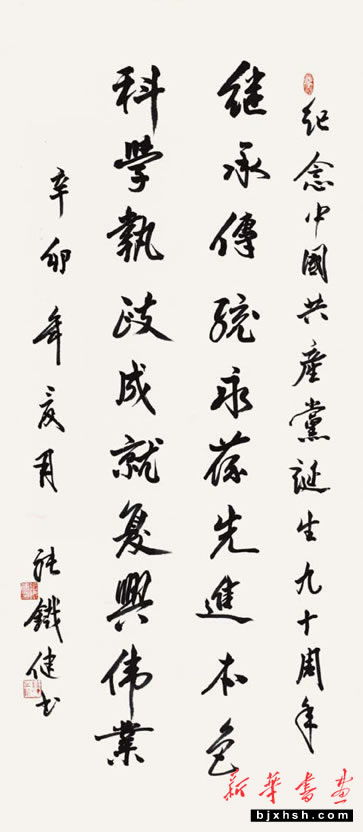 紀念中國共產黨誕生九十周年
继承傳統永葆先進本色
科學執政成就复興伟業
辛卯年夏月
張鐵健书
新華書畫
www.bjxhsh.com